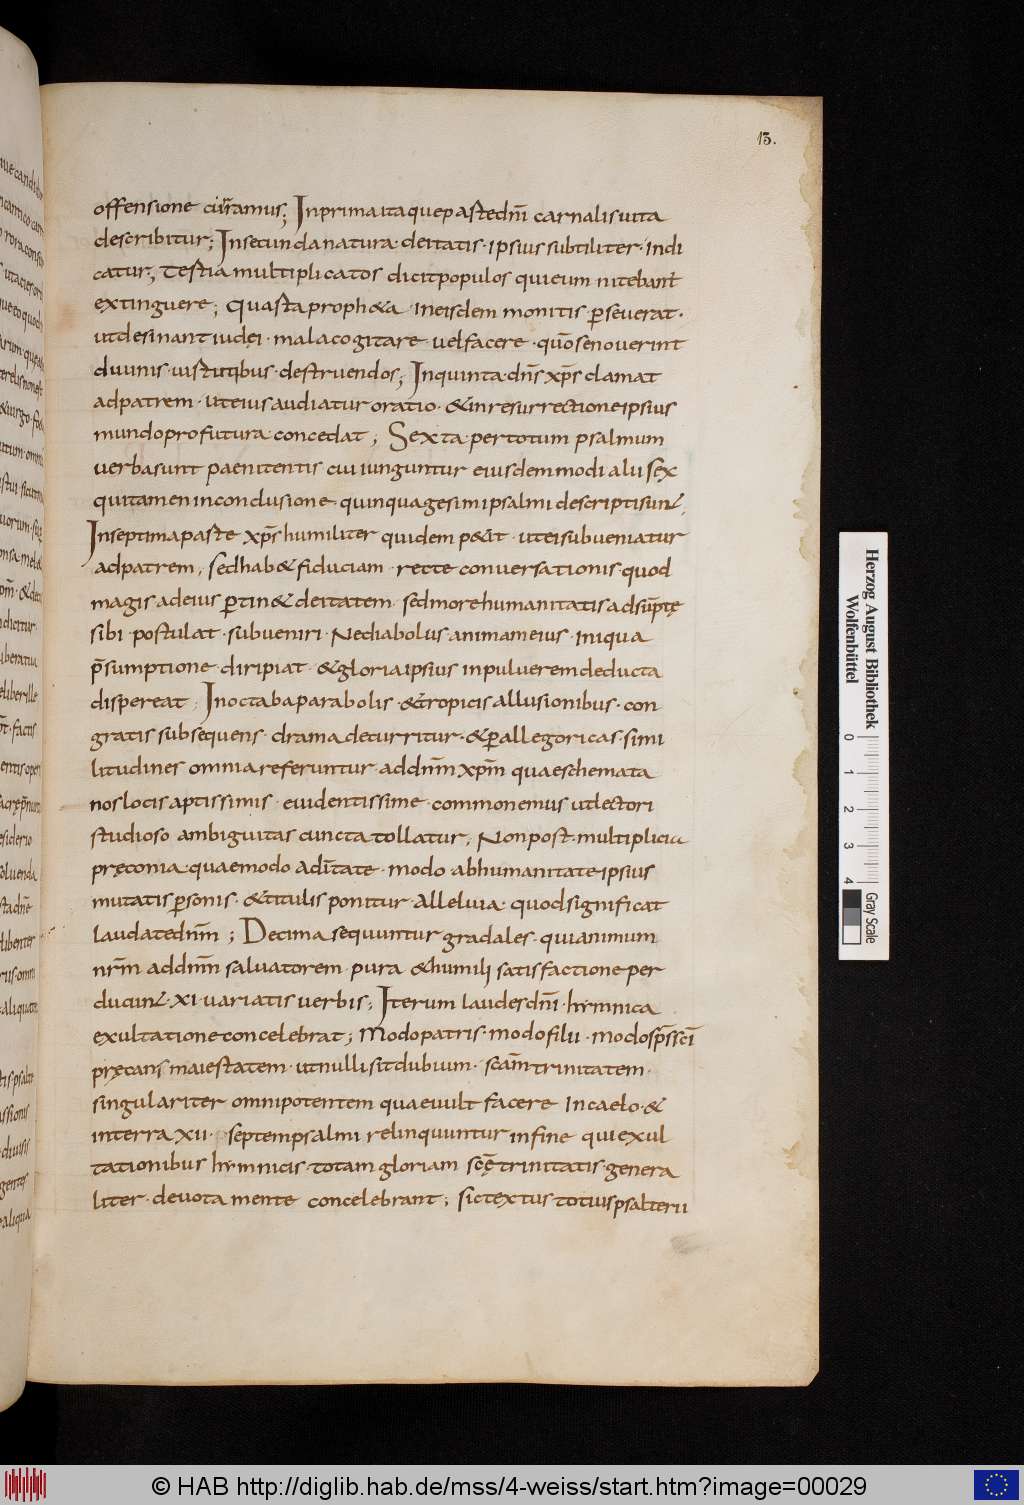 13.
offensione cur̄ramus; In prima itaque paste dn̄i carnalis uita
describitur; In secunda natura deitatis · ipsius subtiliter · indi
catur; Testia multiplicatos dicit populos qui eum nitebant
extinguere; Quasta proph&a · in eisdem monitis p̱seuerat ·
ut desinant iudęi · mala cogitare uel facere · quōs enouerint
diuinis uistitiibus · destruendos; In quinta · dn̄s xp̄s clamat
ad patrem · ut eius audiatur oratio · & in resurrectione ipsius
mundo profutura concedat; Sexta · per totum psalmum
uerba sunt paenitentis cui iunguntur eiusdem modi alii sex
qui tamen in conclusione · quinquagesimi psalmi descripti sunt,
In septima paste xp̄s humiliter quidem p&it · ut ei subueniatur
ad patrem, sed hab& fiduciam · recte conuersationis · quod
magis ad eius p̱tin& deitatem · sed more humanitatis adsūptę
sibi · postulat · subueniri · Ne diabolus animam eius · iniqua
p̄sumptione · diripiat · & gloria ipsius in puluerem deducta
dispereat, In octaba parabolis · & tropicis allusionibus · con
gratis subsequens · drama decurritur · & p̱ allegoricas · simi
litudines omnia referuntur · ad dn̄m xp̄m quae schemata
nos locis aptissimis · euidentissime · commonemus ut lectori
studioso ambiguitas cuncta tollatur; Non post · multiplicia
pręconia · quae modo aditate · modo ab humanitate ipsius
mutatis p̱sonis · & titulis ponitur · Alleluia · quod significat
laudate dn̄m; Decima sequuntur gradales · qui animum
nr̄m ad dn̄m saluatorem · pura & humili satisfactione · per
ducunt · XI · uariatis uerbis; Iterum laudes dn̄i · hymnica
exultatione concelebrat; Modo patris · modo filii · modo sp̄s sc̄i
pręcans maiestatem · ut nulli sit dubium · sc̄am trinitatem ·
singulariter omnipotentem quae uult facere in caelo · &
in terra XII · septem psalmi relinquuntur in fine qui exul
tationibus hymnicis · totam gloriam sc̄ę trinitatis · genera
liter · deuota mente concelebrant; sic textus totius psalterii
Herzog August Bibliothek
Wolfenbüttel
0 1 2 3 4
Gray Scale
© HAB http://diglib.hab.de/mss/4-weiss/start.htm?image=00029